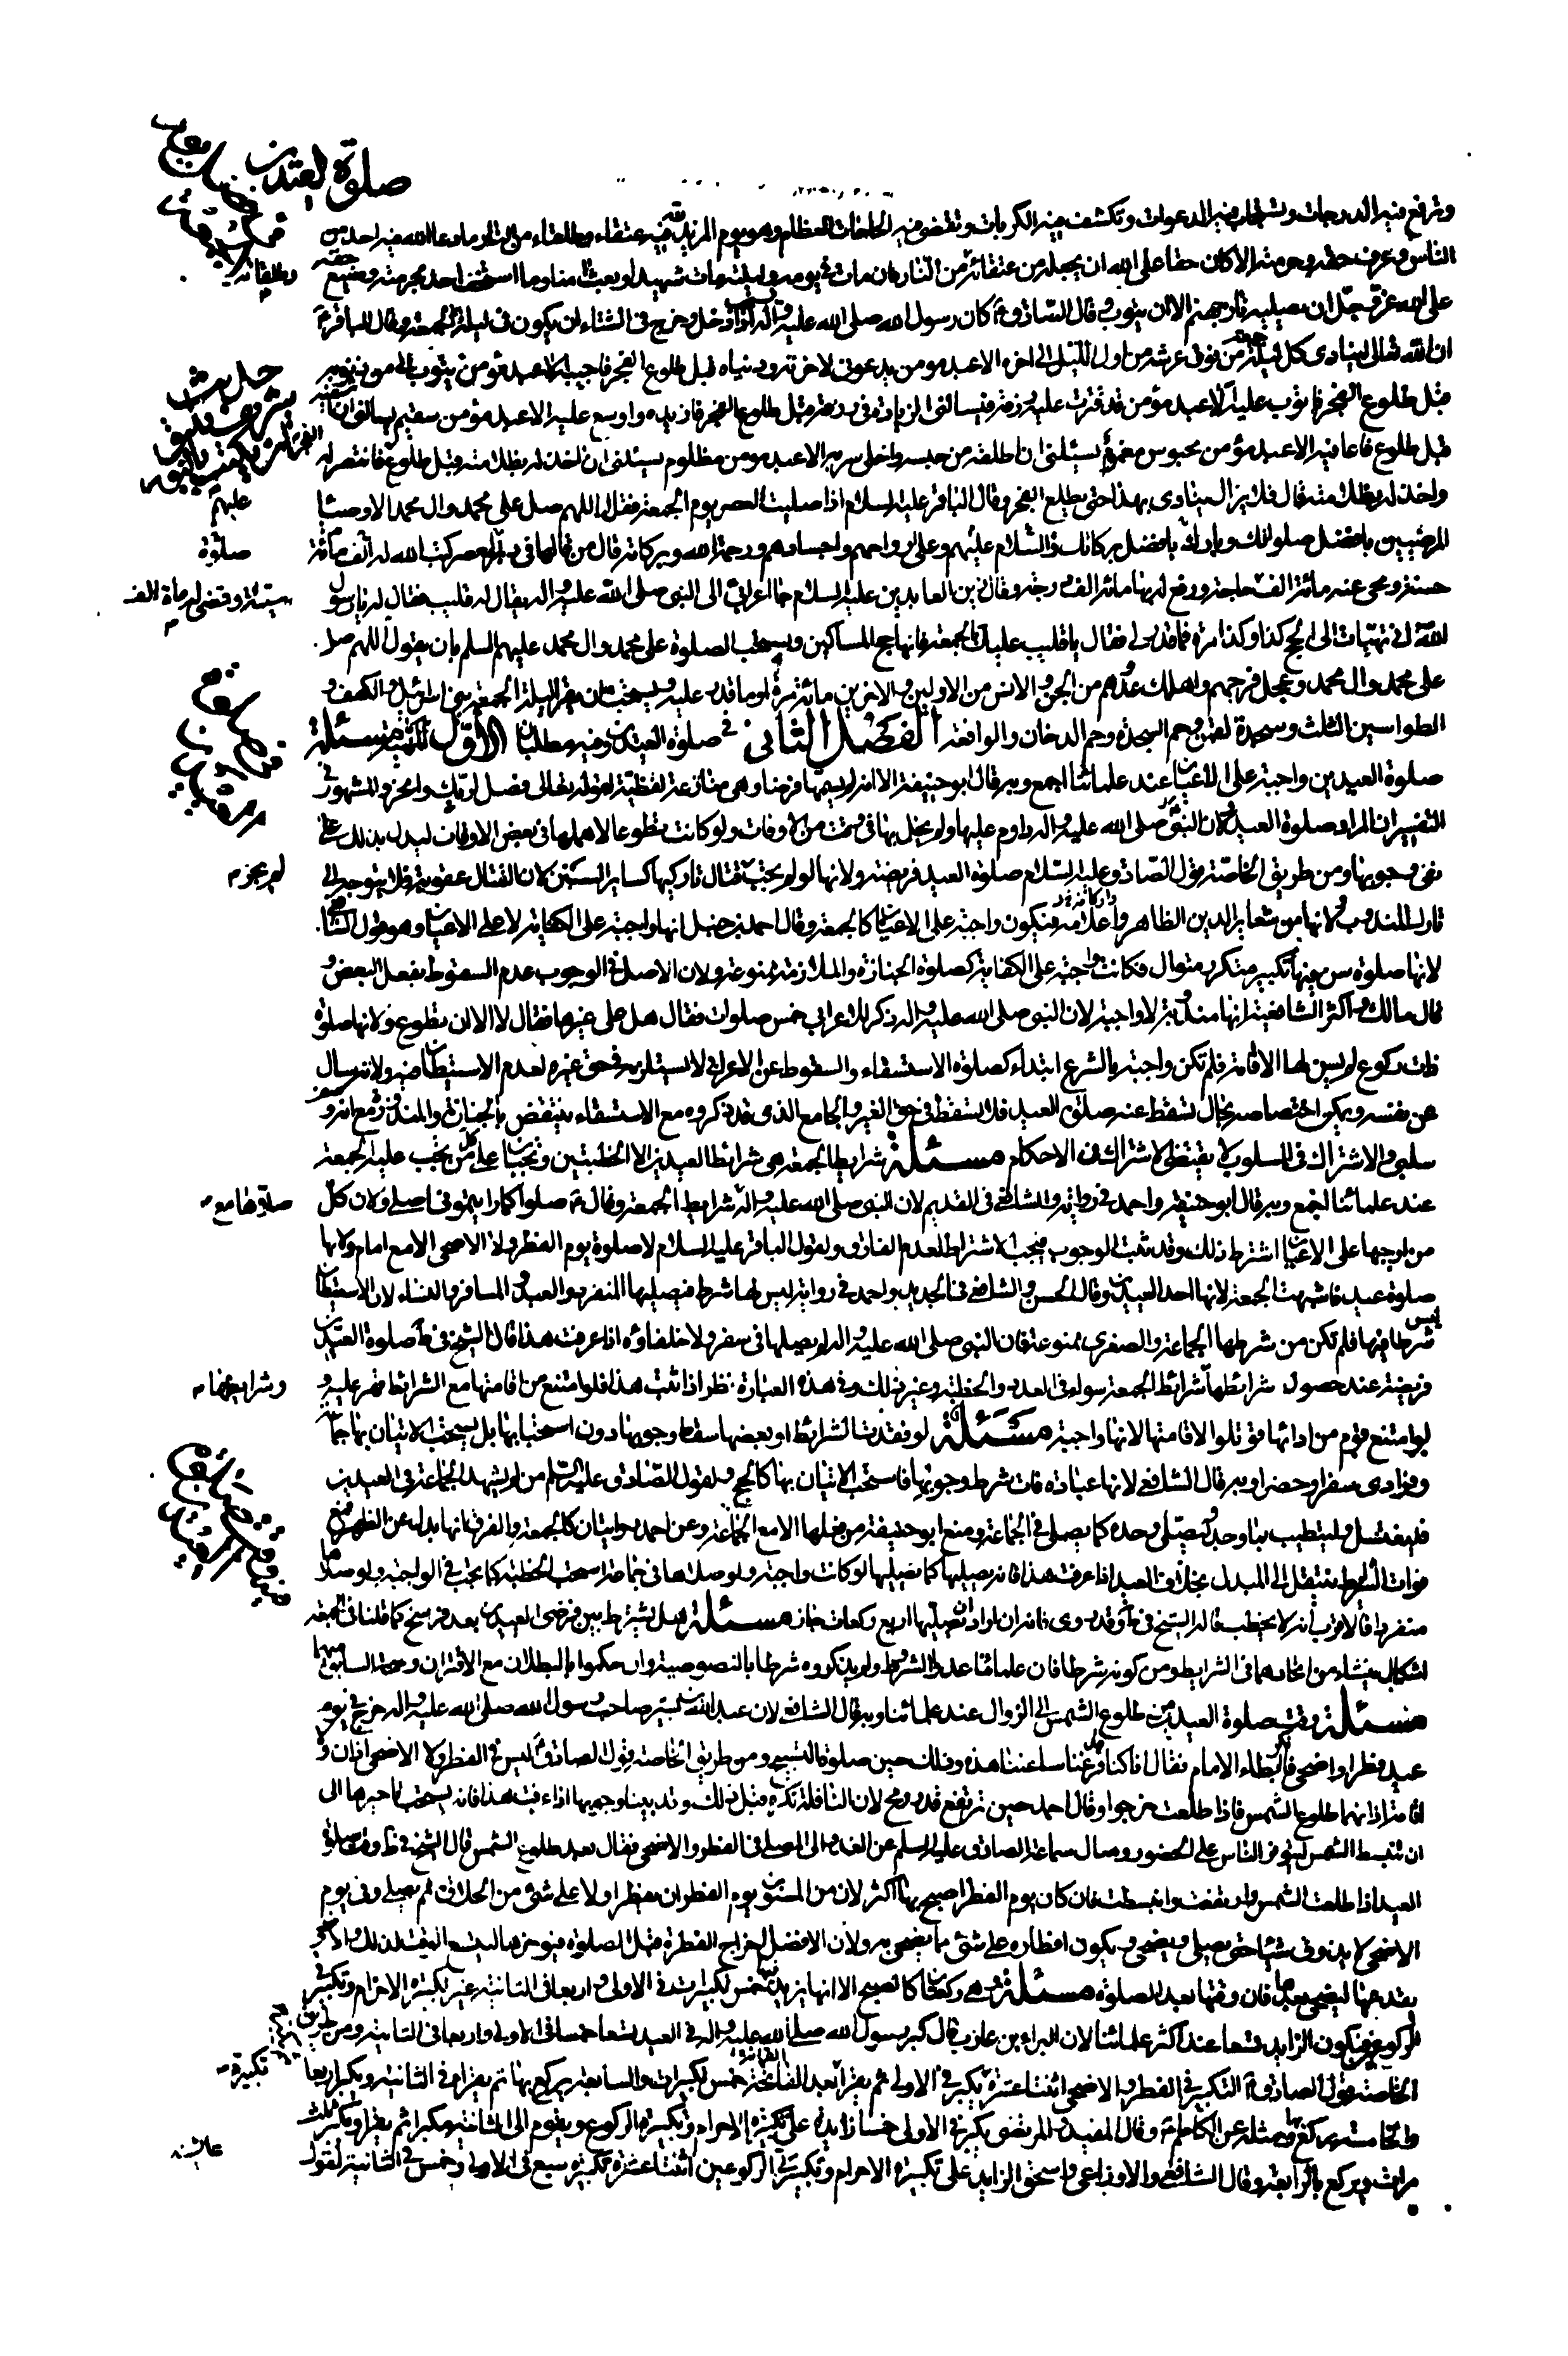 صلوة العيدين
وترفع فيه الدرجات وتستجاب فيه الدعوات وتكشف فيه الكربات وتقضى فيه الحاجات العظام وهو يوم المزيد لله فيه عتقاء وطلقاء من النار ما دعا الله فيه احد من
الناس وعرف حقه وحرمته الا كان حقا على الله ان يجعله من عتقائه من النار فان مات في يومه وليلته مات شهيدا وبعث امنا وما استخف احد بحرمته وضيع حقه
على الله عز وجل ان يصليه نار جهنم الا ان يتوب وقال الصادق ع كان رسول الله صلى الله عليه واله اذا دخل وخرج في الشتاء ان يكون في ليلة الجمعة وقال الباقر ع
ان الله تعالى لينادى كل ليلة جمعة من فوق عرشه من اول الليل الى اخره الا عبد مومن يدعوني لاخرته ودنياه قبل طلوع الفجر فاجيبه الا عبد مؤمن يتوب الى من ذنوبه
قبل طلوع الفجر فاتوب عليه الا عبد مؤمن قد قترت عليه رزقه فيسالني الزيادة في رزقه قبل طلوع الفجر فازيده واوسع عليه الا عبد مؤمن سقيم يسالني ان اشفيه
قبل طلوع فاعافيه الا عبد مؤمن محبوس مغموم يسئلني ان اطلقه من حبسه واخلى سربه الا عبد مومن مظلوم يسئلني ان اخذ له بظلامته قبل طلوع فانتصر له
واخذ له بظلامته قال فلا يزال ينادى بهذا حتى يطلع الفجر وقال الباقر عليه السلام اذا صليت العصر يوم الجمعة فقل اللهم صل على محمد وال محمد الاوصيا
المرضيين بافضل صلواتك وبارك بافضل بركاتك والسلام عليهم وعلى ارواحهم واجسادهم ورحمة الله وبركاته قال من قالها في دبر العصر كتب الله له مائة الف
حسنة ومحى عنه مائة الف حاجة ورفع له بها مائة الف درجة وقال زين العابدين عليه السلام جاء اعرابي الى النبي صلى الله عليه واله يقال له قليب فقال له يا رسول
الله اني تهيات الى الحج كذا وكذا مرة فما قدر لي فقال يا قليب عليك بالجمعة فانها حج المساكين ويستحب الصلوة على محمد وال محمد عليهم السلم بان يقول اللهم صل
على محمد وال محمد وعجل فرجهم واهلك عدوهم من الجن والانس من الاولين والاخرين مائة مرة او ما قدر عليه ويستحب ان يقرا ليلة الجمعة بني اسرائيل والكهف و
الطواسين الثلث وسجدة لقمن وحم السجدة وحم الدخان والواقعة الفصل الثاني في صلوة العيدين وفيه مطلبان الاول مسئلة
صلوة العيدين واجبة على الاعيان عند علمائنا اجمع وبه قال ابو حنيفة الا انه لم يسمها فرضا وهي منازعة لفظية لقوله تعالى فصل لربك وانحر والمشهور في
التفسير ان المراد صلوة العيد ولان النبي صلى الله عليه واله داوم عليها ولم يخل بها في وقت من الاوقات ولو كانت تطوعا لاهملها في بعض الاوقات ليدل بذلك على
نفي وجوبها ومن طريق الخاصة قول الصادق عليه السلام صلوة العيد فريضة ولانها لو لم يجب قتال تاركيها كساير السنن لان القتال عقوبة فلا يتوجه الى
تارك المندوب ولانها من شعاير الدين الظاهرة واعلامه فيكون واجبة على الاعيان كالجمعة وقال احمد بن حنبل انها واجبة على الكفاية لا على الاعيان وهو قول الشا
لانها صلوة سن فيها تكبير متكرر متوال فكانت واجبة على الكفاية كصلوة الجنازة والملازمة ممنوعة ولان الاصل في الوجوب عدم السقوط بفعل البعض و
قال مالك واكثر الشافعية انها مندوبة لا واجبة لان النبي صلى الله عليه واله ذكر للاعرابي خمس صلوات فقال هل على غيرها فقال لا الا ان يتطوع ولانها صلوة
ذات ركوع لم يسن لها الاقامة فلم تكن واجبة بالشرع ابتداء كصلوة الاستسقاء والسقوط عن الاعرابي لا يستلزمه في حق غيره لعدم الاستيطان فيه ولانه سال
عن نفسه ويمكن اختصاصه بحال تسقط عنه صلوة العيد فلا تسقط في حق الغير والجامع الذى قد ذكروه مع الاستسقاء ينتقض بالجنازة والمنذورة مع انه وصف
سلبي والاشتراك في السلوب لا يقتضي الاشتراك في الاحكام مسئلة شرايط الجمعة هي شرايط العيدين الا الخطبتين وتجب على كل من تجب عليه الجمعة
عند علمائنا اجمع وبه قال ابو حنيفة واحمد في رواية والشافعي في القديم لان النبي صلى الله عليه واله شرايط الجمعة وقال ع صلوا كما رايتموني اصلي ولان كل
من اوجبها على الاعيان اشترط ذلك وقد ثبت الوجوب فيجب الاشتراط لعدم الفارق ولقول الباقر عليه السلام لا صلوة يوم الفطر ولا الاضحى الا مع امام ولانها
صلوة عيد فاشبهت الجمعة لانها احد العيدين وقال الحسن والشافعي في الجديد واحمد في رواية ليس لها شرط فيصليها المنفرد والعبد والمسافر والنساء لان الاستيطان
ليس شرطا فيها فلم تكن من شرطها الجماعة والصغرى ممنوعة فان النبي صلى الله عليه واله لم يصلها في سفر ولا خلفاؤه اذا عرفت هذا قال الشيخ في ط صلوة العيدين
فريضة عند حصول شرائطها شرائط الجمعة سواء في العدد والخطبة وغير ذلك وفي هذه العبارة نظر اذا ثبت هذا فلو امتنع من اقامتها مع الشرائط قهر عليه و
لو امتنع قوم من ادائها قوتلوا لاقامتها لانها واجبة مسئلة لو فقدت الشرائط او بعضها سقط وجوبها دون استحبابها بل يستحب الاتيان بها جماعة
وفرادى سفرا وحضرا وبه قال الشافعي لانها عبادة فات شرط وجوبها فاستحب الاتيان بها كالحج ولقول الصادق عليه السلم من لم يشهد الجماعة في العيدين
فليغتسل وليتطيب بما وجد وليصلي وحده كما يصلى في الجماعة ومنع ابو حنيفة من فعلها الا مع الجماعة وعن احمد روايتان كالجمعة والفرق انها بدل عن الظهر فمع
فوات الشرايط ينتقل الى المبدل بخلاف العيد اذا عرفت هذا فانه يصليها كما يصليها لو كانت واجبة ولو صلاها في جماعة استحب الخطبة كما تجب في الواجبة ولو صلاها
منفردا فالاقرب انه لا يخطب قاله الشيخ في ط وقد روى انه ان اراد ان يصليها اربع ركعات جاز مسئلة وهل يشترط بين فرضي العيدين بعد فرسخ كما قلنا في الجمعة
اشكال ينشاء من اتحادهما في الشرايط ومن كونه شرطا فان علمائنا عدوا الشروط ولم يذكروه شرطا بالنصوصية وان حكموا بالبطلان مع الاقتران وصحة السابق منهما
مسئلة وقت صلوة العيد من طلوع الشمس الى الزوال عند علمائنا وبه قال الشافعي لان عبد الله بن بسر صاحب رسول الله صلى الله عليه واله خرج في يوم
عيد فطر او اضحى فانكر ابطاء الامام فقال انا كنا قد فرغنا ساعتنا هذه وذلك حين صلوة التسبيح ومن طريق الخاصة قول الصادق ع ليس في الفطر ولا الاضحى اذان و
اقامة اذانهما طلوع الشمس فاذا طلعت خرجوا وقال احمد حين ترتفع قدر رمح لان النافلة تكره قبل ذلك وقد بينا وجوبها اذا عرفت هذا فانه يستحب تاخيرها الى
ان تنبسط الشمس ليتوفر الناس على الحضور وسال سماعة الصادق عليه السلم عن الغدو الى المصلى في الفطر والاضحى فقال بعد طلوع الشمس قال الشيخ في ط وقت صلوة
العيد اذا طلعت الشمس وارتفعت وانبسطت فان كان يوم الفطر اصبح بها اكثر لان من المسنون يوم الفطر ان يفطر اولا على شئ من الحلاوة ثم يصلي وفي يوم
الاضحى لا يذوق شيئا حتى يصلي ويضحي ويكون افطاره على شئ مما يضحي به ولان الافضل اخراج الفطرة قبل الصلوة فيوخرها ليتسع الوقت لذلك والاضحى
يقدمها ليضحي بعدها فان وقتها بعد الصلوة مسئلة وهي ركعتان كالصبح الا انها يزيد فيها خمس تكبيرات في الاولى واربعا في الثانية غير تكبيرة الاحرام وتكبيرتي
الركوعين فيكون الزايد تسعا عند اكثر علمائنا لان البراء بن عازب قال كبر رسول الله صلى الله عليه واله في العيد تسعا خمسا في الاولى واربعا في الثانية ومن طريق
الخاصة قول الصادق ع التكبير في الفطر والاضحى اثنتا عشرة يكبر في الاولى ثم يقرأ بعد الفاتحة خمس تكبيرات والسابعة يركع بها ثم يقرا في الثانية ويكبر اربعا
والخامسة يركع بها ومثله عن الكاظم ع وقال المفيد والمرتضى يكبر في الاولى خمسا زايدة على تكبيرة الاحرام وتكبيرة الركوع ويقوم الى الثانية مكبرا ثم يقرا ويكبر ثلث
مرات ويركع بالرابعة وقال الشافعي والاوزاعي واسحق الزايد على تكبيرة الاحرام وتكبيرتي الركوعين اثنتا عشرة تكبيرة سبع في الاولى وخمس في الثانية لقول
وطلقائه
عليهم
صلوة
سيئة وقضى له مائة الف
لم يجز
صلاها مع
وشرايطها
تكبيرة
عائشة